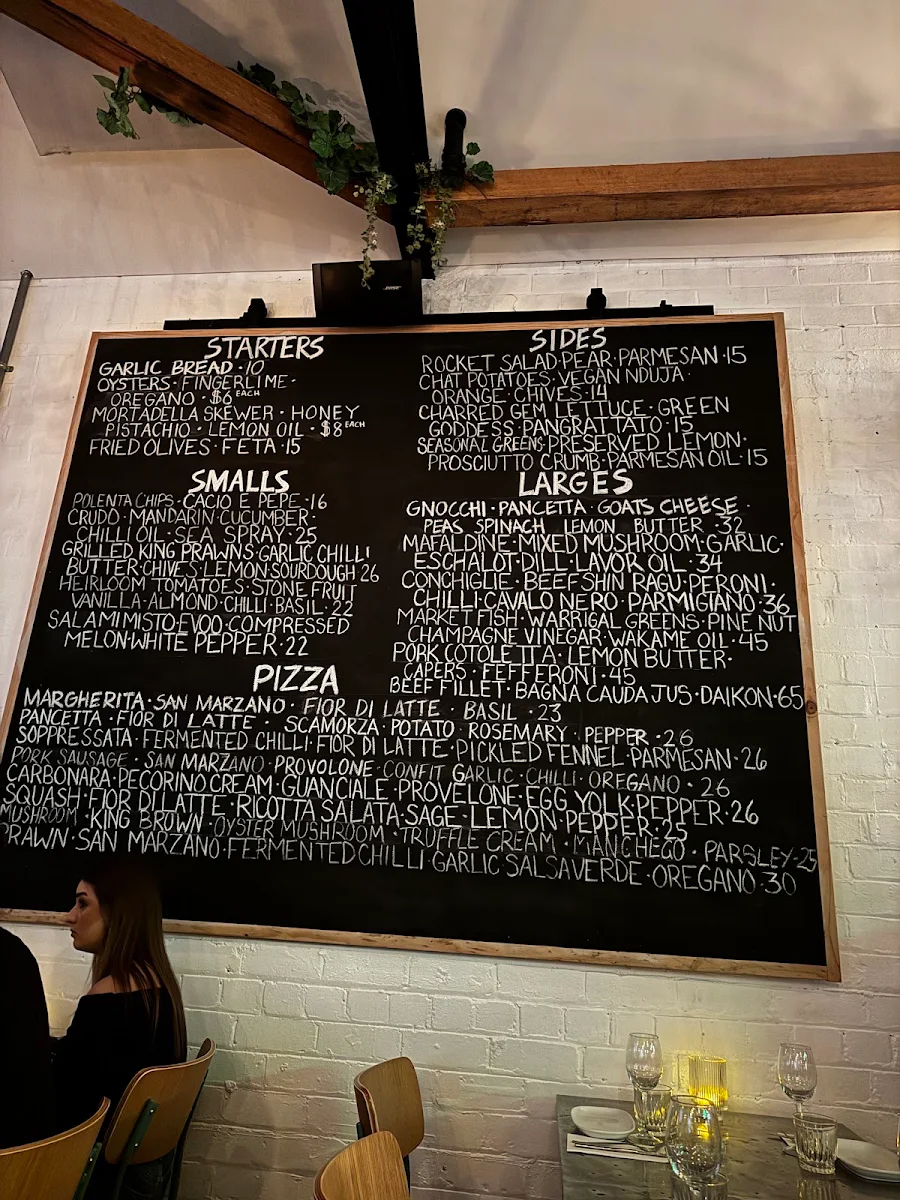 BOSE
STARTERS
GARLIC BREAD · 10
OYSTERS · FINGERLIME ·
OREGANO · $6 EACH
MORTADELLA SKEWER · HONEY
PISTACHIO · LEMON OIL · $8 EACH
FRIED OLIVES · FETA · 15
SMALLS
POLENTA CHIPS · CACIO E PEPE · 16
CRUDO · MANDARIN · CUCUMBER ·
CHILLI OIL · SEA SPRAY · 25
GRILLED KING PRAWNS · GARLIC CHILLI
BUTTER · CHIVES · LEMON SOURDOUGH 26
HEIRLOOM TOMATOES · STONE FRUIT
VANILLA · ALMOND · CHILLI · BASIL · 22
SALAMI MISTO · EVOO · COMPRESSED
MELON · WHITE PEPPER · 22
SIDES
ROCKET SALAD · PEAR · PARMESAN · 15
CHAT POTATOES · VEGAN NDUJA ·
ORANGE · CHIVES · 14
CHARRED GEM LETTUCE · GREEN
GODDESS · PANGRATTATO · 15
SEASONAL GREENS · PRESERVED LEMON ·
PROSCIUTTO CRUMB · PARMESAN OIL · 15
LARGES
GNOCCHI · PANCETTA · GOATS CHEESE ·
PEAS SPINACH LEMON BUTTER · 32
MAFALDINE · MIXED MUSHROOM · GARLIC ·
ESCHALOT · DILL · LAVOR OIL · 34
CONCHIGLIE · BEEF SHIN RAGU · PERONI ·
CHILLI · CAVALO NERO · PARMIGIANO · 36
MARKET FISH · WARRIGAL GREENS · PINE NUT
CHAMPAGNE VINEGAR · WAKAME OIL · 45
PORK COTOLETTA · LEMON BUTTER ·
CAPERS · FEFFERONI · 45
BEEF FILLET · BAGNA CAUDA JUS · DAIKON · 65
PIZZA
MARGHERITA · SAN MARZANO · FIOR DI LATTE · BASIL · 23
PANCETTA · FIOR DI LATTE · SCAMORZA · POTATO · ROSEMARY · PEPPER · 26
SOPPRESSATA · FERMENTED CHILLI · FIOR DI LATTE · PICKLED FENNEL · PARMESAN · 26
PORK SAUSAGE · SAN MARZANO · PROVOLONE · CONFIT GARLIC · CHILLI · OREGANO · 26
CARBONARA · PECORINO CREAM · GUANCIALE · PROVELONE · EGG YOLK · PEPPER · 26
SQUASH · FIOR DI LATTE · RICOTTA SALATA · SAGE · LEMON · PEPPER · 25
MUSHROOM · KING BROWN · OYSTER MUSHROOM · TRUFFLE CREAM · MANCHEGO · PARSLEY · 25
PRAWN · SAN MARZANO · FERMENTED CHILLI · GARLIC · SALSA VERDE · OREGANO · 30